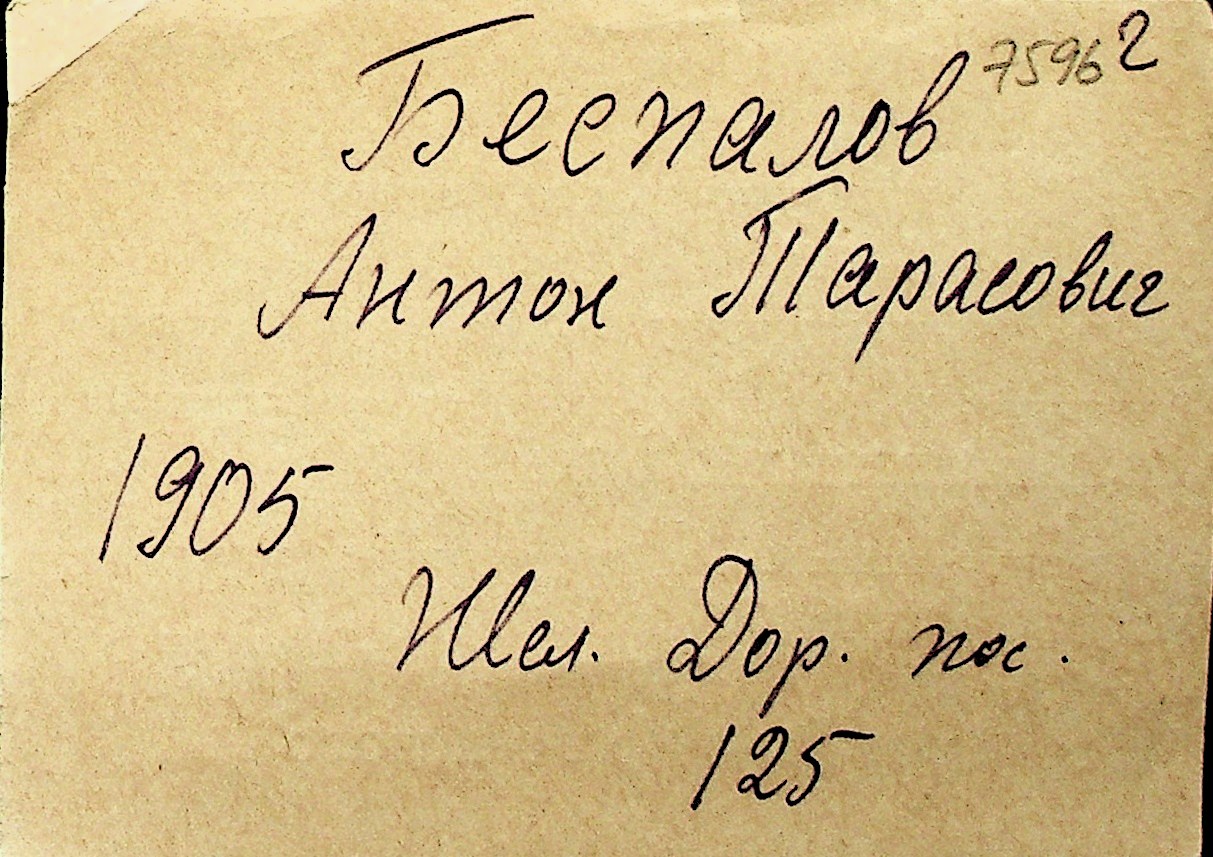 7596 2
Беспалов
Антон Тарасович
1905
Жел. Дор. пос.
125